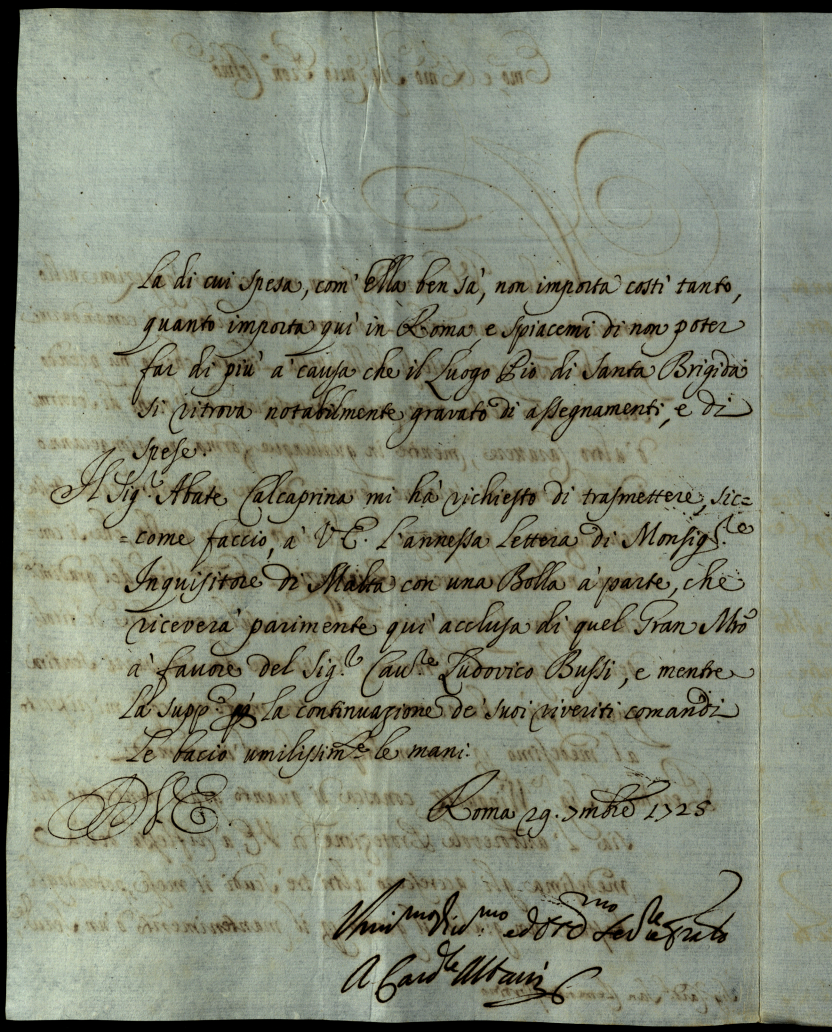 la di cui spesa, com' Ella ben sà, non importa costì tanto,
quanto importa quì in Roma, e spiacemi di non poter
far di più a causa che il Luogo Pio di Santa Brigida
si ritrova notabilmente gravato di assegnamenti, e di
spese.
Il Sig.r Abate Calcaprina mi hà richiesto di trasmettere, sic=
=come faccio, à V.E. l'annessa lettera di Monsig.re
Inquisitore di Malta con una Bolla à parte, che
riceverà parimente quì acclusa di quel Gran Mro
à favore del Sig.r Cav.re Ludovico Bussi, e mentre
la supp.co la continuazione de' suoi riveriti comandi
le bacio umilissim.e le mani.
D V.E.
Roma 29. 7mbre 1725
Umi.mo Div.mo ed
A Card.le Albani